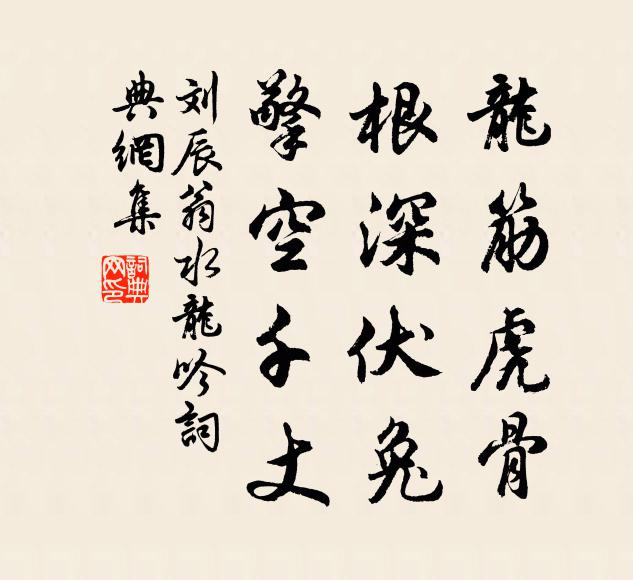 龍筋虎骨
根深伏兔
擎空千丈
刘辰翁水龍吟詞
典網集
詞典
网印